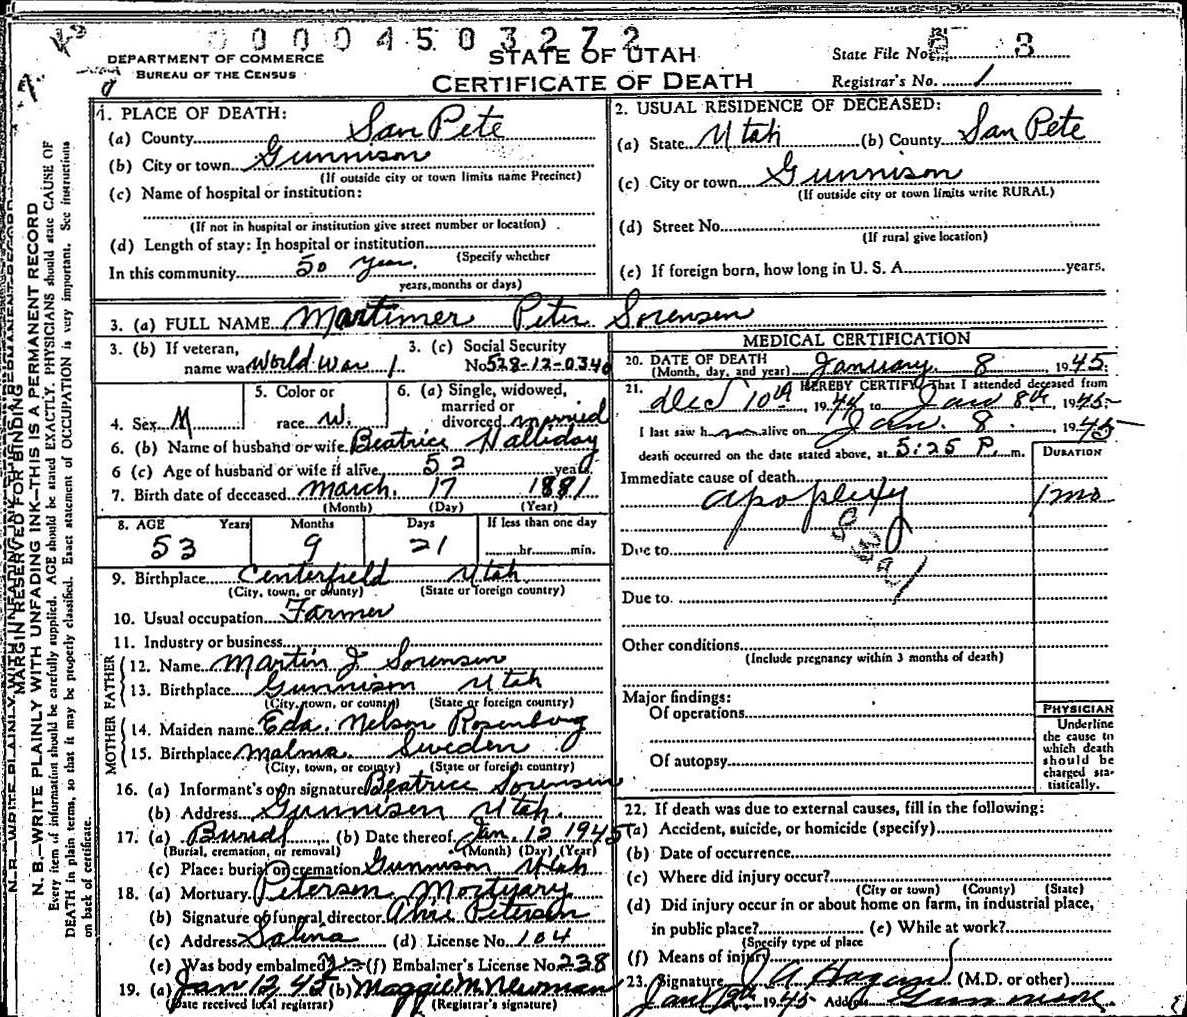 0 0 0 0 4 5 0 3 2 7 2
DEPARTMENT OF COMMERCE
BUREAU OF THE CENSUS
STATE OF UTAH
CERTIFICATE OF DEATH
State File No. 3
Registrar's No. 1
MARGIN RESERVED FOR BINDING
N. B.—WRITE PLAINLY WITH UNFADING INK—THIS IS A PERMANENT RECORD
Every item of information should be carefully supplied. AGE should be stated EXACTLY. PHYSICIANS should state CAUSE OF
DEATH in plain terms, so that it may be properly classified. Exact statement of OCCUPATION is very important. See instructions
on back of certificate.
1. PLACE OF DEATH:
(a) County San Pete
(b) City or town Gunnison
(If outside city or town limits name Precinct)
(c) Name of hospital or institution:
(If not in hospital or institution give street number or location)
(d) Length of stay: In hospital or institution
(Specify whether
In this community 50 year.
years, months or days)
2. USUAL RESIDENCE OF DECEASED:
(a) State Utah (b) County San Pete
(c) City or town Gunnison
(If outside city or town limits write RURAL)
(d) Street No.
(If rural give location)
(e) If foreign born, how long in U. S. A. years.
3. (a) FULL NAME Martimer Peter Sorensen
3. (b) If veteran, name war World War 1
3. (c) Social Security No. 528-12-0340
4. Sex M
5. Color or race W.
6. (a) Single, widowed, married or divorced married
6. (b) Name of husband or wife Beatrice Halliday
6 (c) Age of husband or wife if alive 52 years
7. Birth date of deceased March 17 1881
(Month) (Day) (Year)
8. AGE Years Months Days If less than one day
53 9 21 hr. min.
9. Birthplace Centerfield Utah
(City, town, or county) (State or foreign country)
10. Usual occupation Farmer
11. Industry or business
FATHER
12. Name Martin J. Sorensen
13. Birthplace Gunnison Utah
(City, town, or county) (State or foreign country)
MOTHER
14. Maiden name Eda. Nelson Rosenborg
15. Birthplace Malma Sweden
(City, town, or county) (State or foreign country)
16. (a) Informant's own signature Beatrice Sorensen
(b) Address Gunnison Utah.
17. (a) Burial (b) Date thereof Jan. 12 1945
(Burial, cremation, or removal) (Month) (Day) (Year)
(c) Place: burial or cremation Gunnison Utah
18. (a) Mortuary Petersen Mortuary
(b) Signature of funeral director Petersen
(c) Address Salina (d) License No. 104
(e) Was body embalmed? (f) Embalmer's License No. 238
19. (a) Jan 12, 45 (b) Maggie M. Newman
(Date received local registrar) (Registrar's signature)
MEDICAL CERTIFICATION
20. DATE OF DEATH January 8 1945
(Month, day, and year)
21. I HEREBY CERTIFY That I attended deceased from
Dec 10th, 1944 to Jan 8th, 1945
I last saw h alive on Jan. 8. 1945
death occurred on the date stated above, at 5:25 P. m.
DURATION
Immediate cause of death
apoplexy 1 mo
Due to
Due to
Other conditions
(Include pregnancy within 3 months of death)
Major findings:
Of operations
Of autopsy
PHYSICIAN
Underline
the cause to
which death
should be
charged sta-
tistically.
22. If death was due to external causes, fill in the following:
(a) Accident, suicide, or homicide (specify)
(b) Date of occurrence
(c) Where did injury occur?
(City or town) (County) (State)
(d) Did injury occur in or about home on farm, in industrial place,
in public place? (e) While at work?
(Specify type of place
(f) Means of injury
23. Signature J A Hagan (M.D. or other)
Jan 12th 1945 Address Gunnison